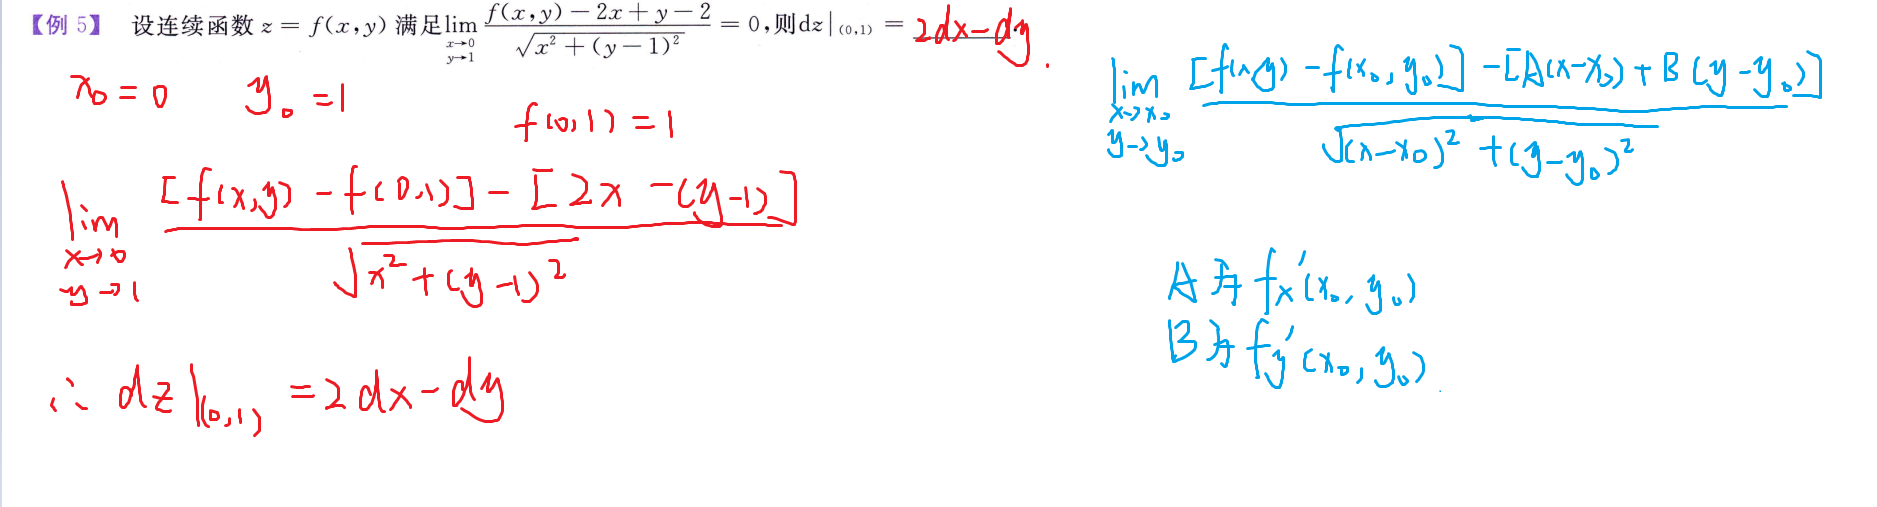 【例 5】 设连续函数 z = f(x,y) 满足 lim_{x→0, y→1} (f(x,y) − 2x + y − 2)/√(x² + (y − 1)²) = 0, 则 dz|_(0,1) = 2dx−dy.
x₀ = 0    y₀ = 1
f(0,1) = 1
lim_{x→0, y→1} ([f(x,y) − f(0,1)] − [2x − (y−1)])/√(x² + (y−1)²)
∴ dz|_(0,1) = 2dx − dy
lim_{x→x₀, y→y₀} ([f(x,y) − f(x₀,y₀)] − [A(x−x₀) + B(y−y₀)])/√((x−x₀)² + (y−y₀)²)
A为 fx′(x₀,y₀)
B为 fy′(x₀,y₀)